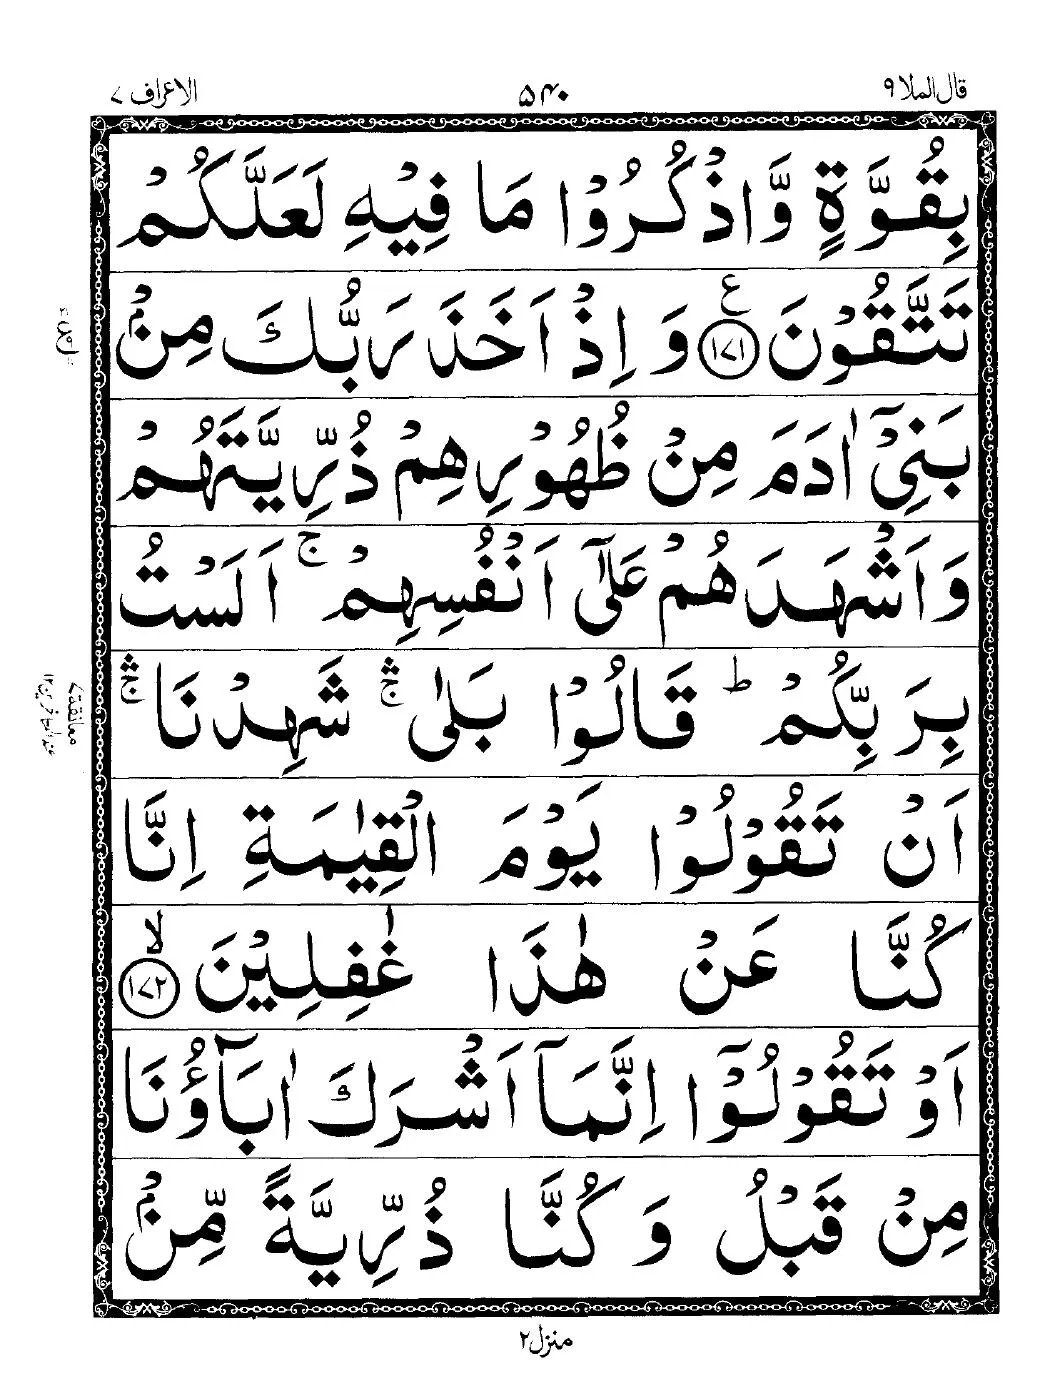 قال الملا ۹
۵۴۰
الاعراف ۷
بِقُوَّةٍ وَّاذْكُرُوْا مَا فِيْهِ لَعَلَّكُمْ
تَتَّقُوْنَ ع ۱۷۱ وَ اِذْ اَخَذَ رَبُّكَ مِنْۢ
بَنِيْۤ اٰدَمَ مِنْ ظُهُوْرِهِمْ ذُرِّيَّتَهُمْ
وَاَشْهَدَهُمْ عَلٰۤى اَنْفُسِهِمْ ۚ اَلَسْتُ
بِرَبِّكُمْ ؕ قَالُوْا بَلٰى ۛۚ شَهِدْنَا ۛۚ
اَنْ تَقُوْلُوْا يَوْمَ الْقِيٰمَةِ اِنَّا
كُنَّا عَنْ هٰذَا غٰفِلِيْنَ ۙ ۱۷۲
اَوْ تَقُوْلُوْۤا اِنَّمَاۤ اَشْرَكَ اٰبَآؤُنَا
مِنْ قَبْلُ وَ كُنَّا ذُرِّيَّةً مِّنْۢ
معانقة ۷
منزل ۲